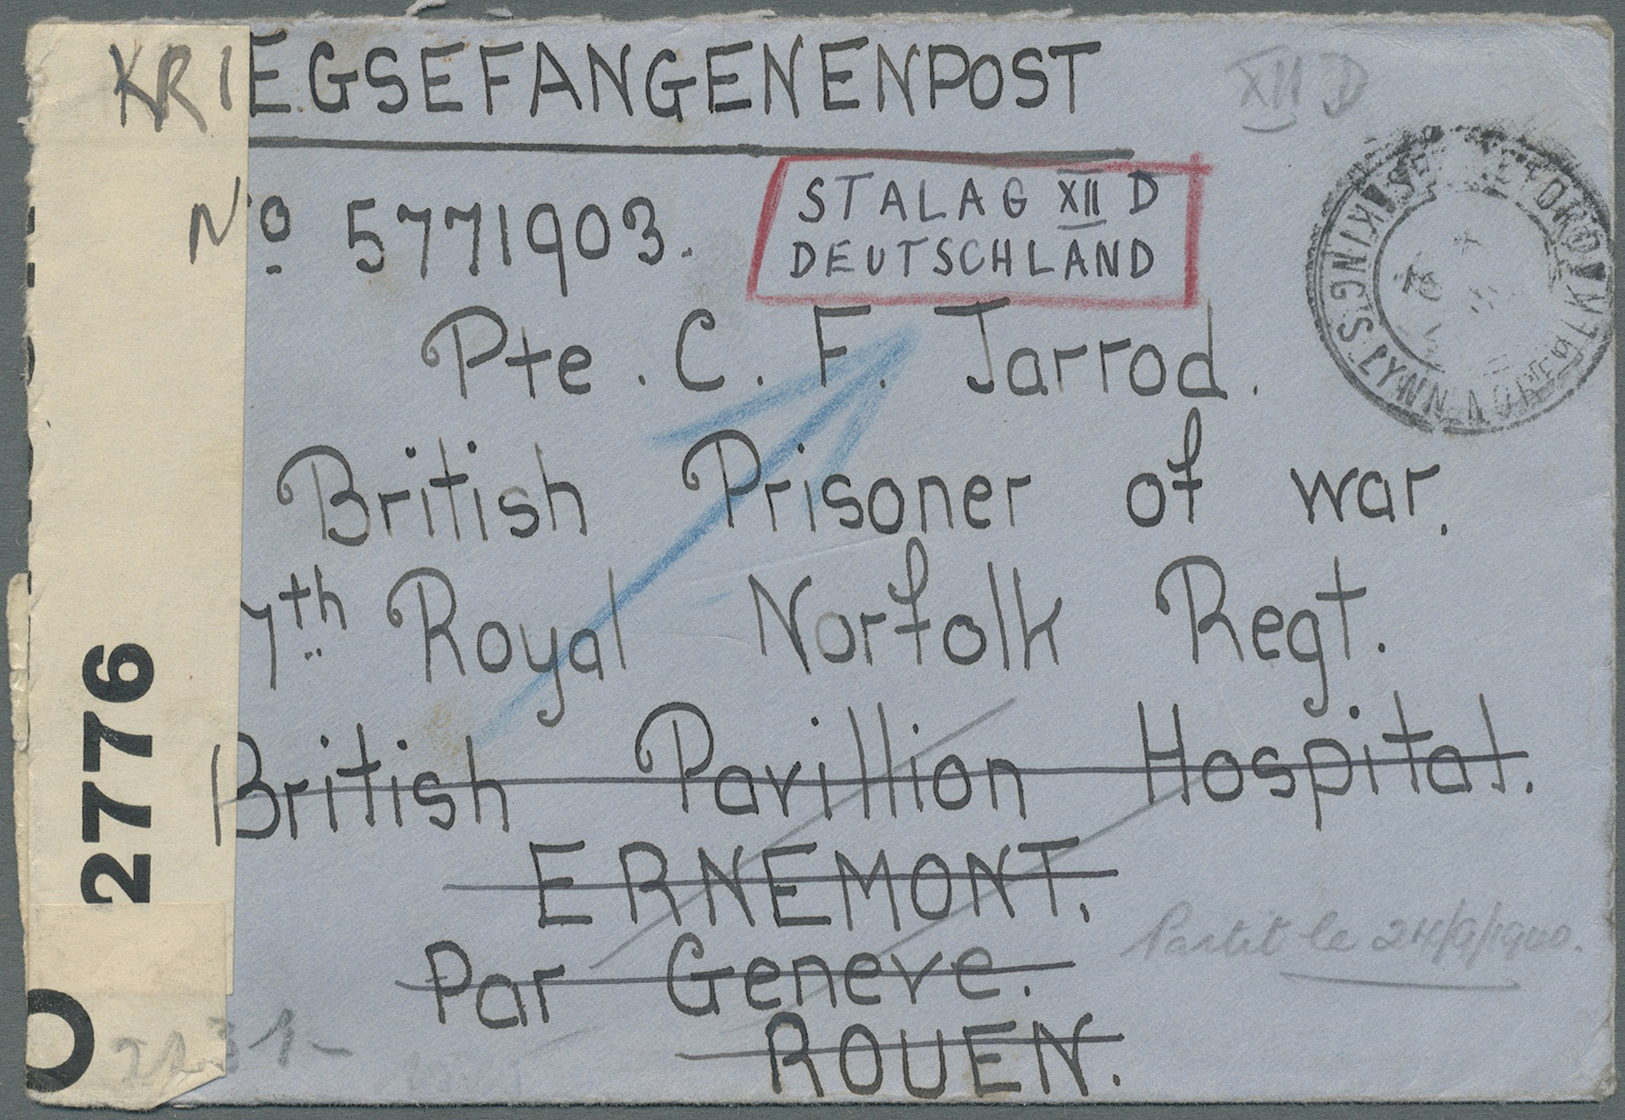 KRIEGSEFANGENENPOST
XII D
No 5771903.
STALAG XII D
DEUTSCHLAND
Pte. C. F. Jarrod.
British Prisoner of war.
7th Royal Norfolk Regt.
British Pavillion Hospital.
ERNEMONT.
Par Geneve.
ROUEN.
Partit le 24/9/1940.
2776
KING'S LYNN NORFOLK